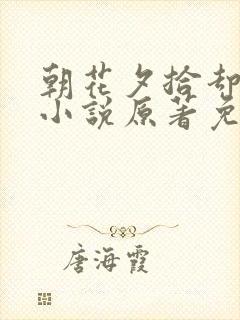 朝花夕拾却
小说原著免
唐海霞